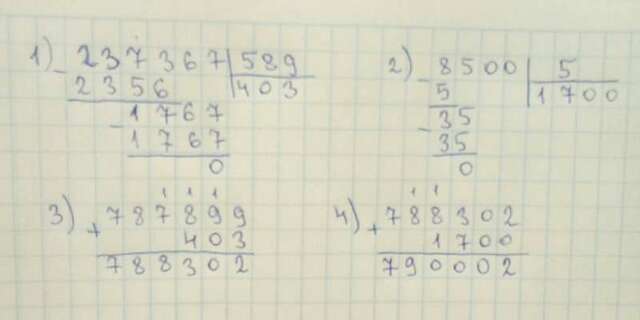 1) - 237367 | 589
2356 | 403
- 1767
1767
0
2) - 8500 | 5
5 | 1700
- 35
35
0
1 1 1
3) + 787899
403
788302
1 1
4) + 788302
1700
790002